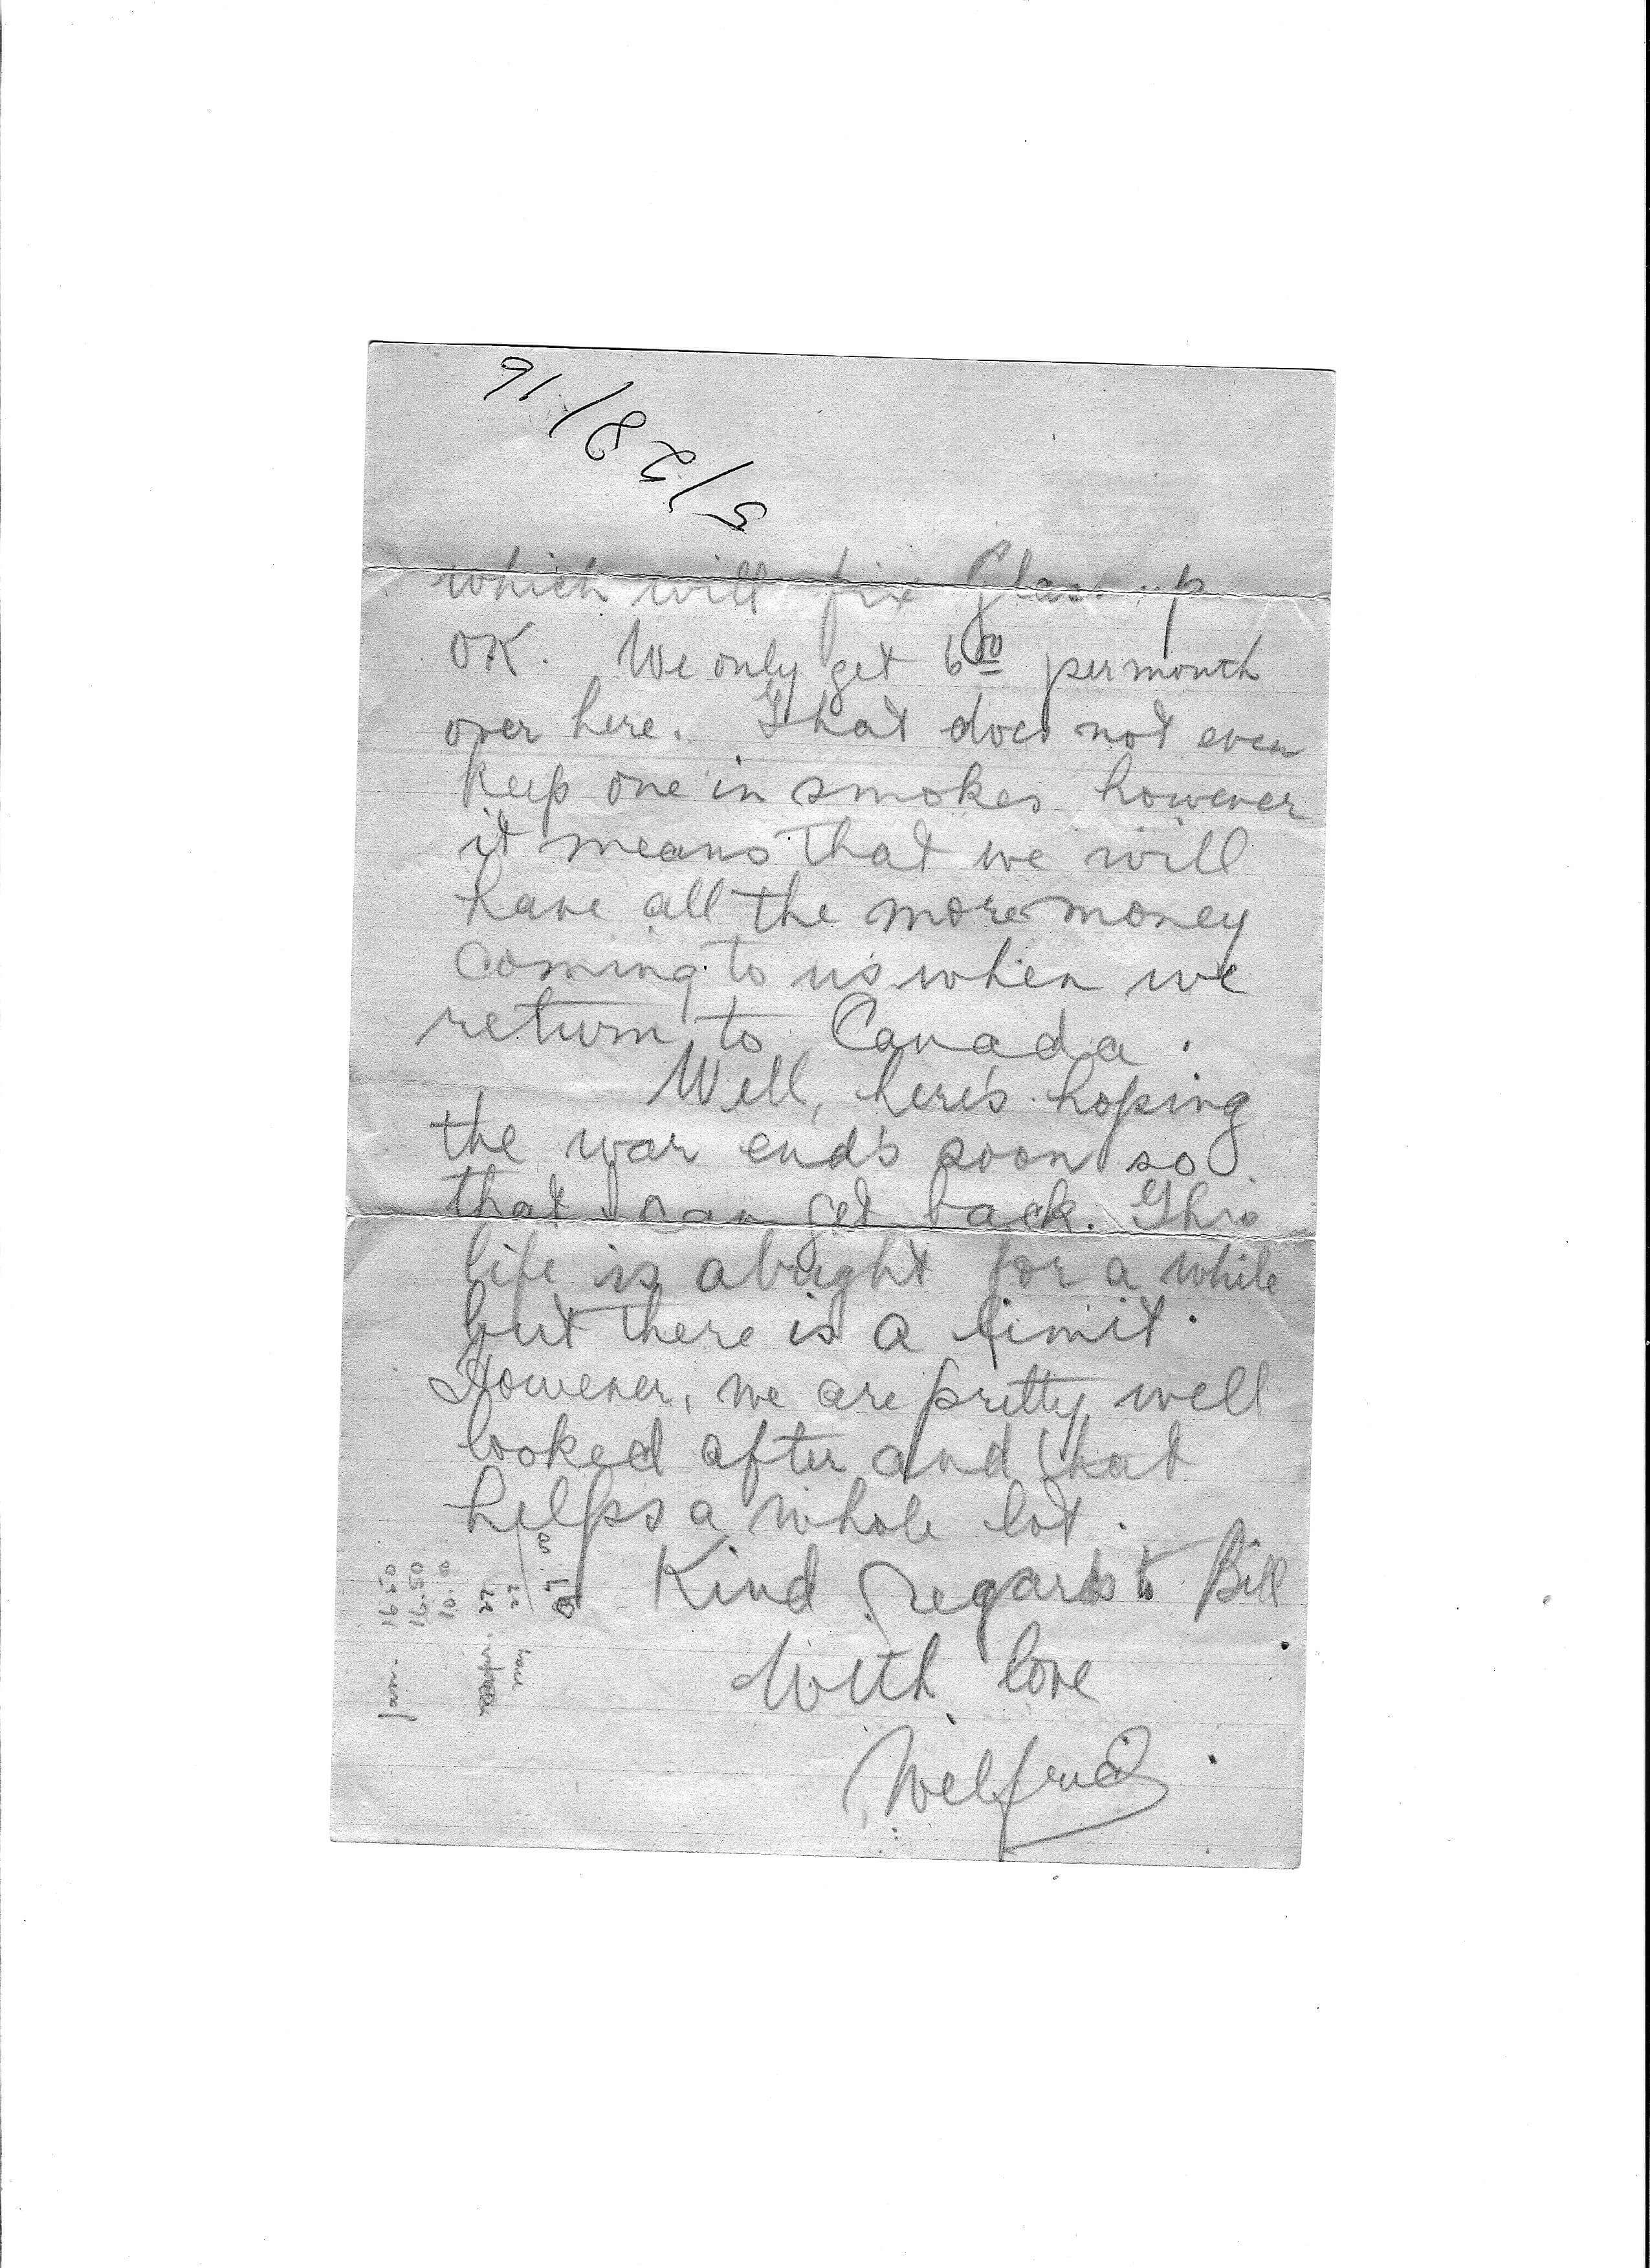 5/28/16
which will fix up
OK. We only get 6 00 per month
over here. That does not even
keep one in smokes however
it means that we will
have all the more money
coming to us when we
return to Canada.
Well, here's hoping
the war ends soon so
that I can get back. This
life is alright for a while
but there is a limit.
However, we are pretty well
looked after and that
helps a whole lot.
Kind regards to Bill
With love
Wilfrid
Jan. 16.50
16.50
10.00
22
may 22